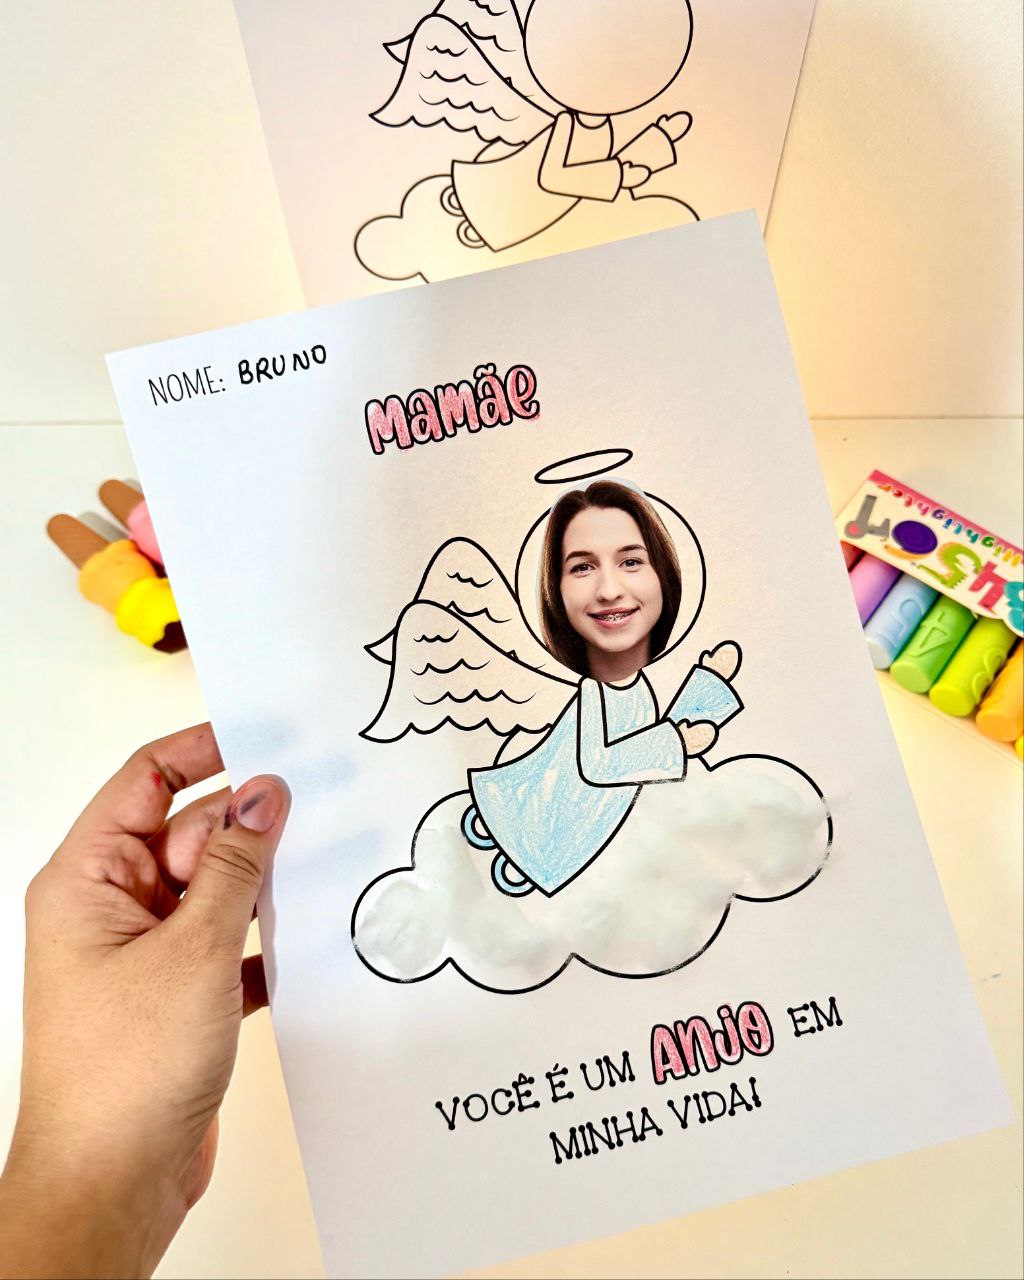 NOME: BRUNO
MAMÃE
VOCÊ É UM ANJO EM
MINHA VIDA!
Highlighter